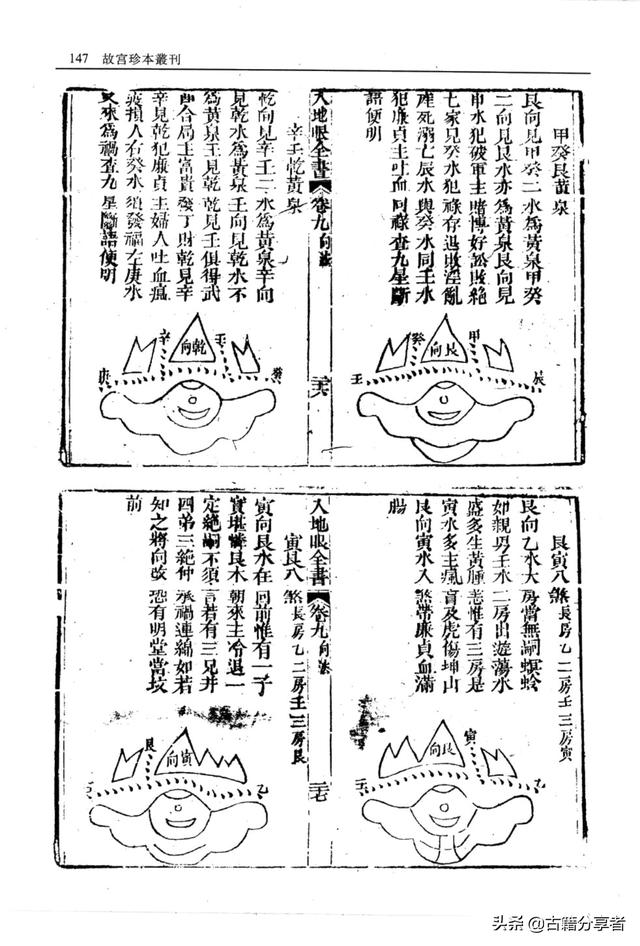 147 故宮珍本叢刊
甲癸艮黃泉
艮向見甲癸二水為黃泉甲癸
二向見艮水亦為黃泉艮向見
甲水犯破軍主賭博好訟敗絕
七家見癸水犯祿存退敗淫亂
產死溺亡辰水與癸水同壬水
犯廉貞主吐血同祿查九星斷
語便明
甲
癸
艮向
辰
壬
入地眼全書
卷九向法
二十六
辛壬乾黃泉
乾向見辛壬二水為黃泉辛向
見乾水為黃泉壬向見乾水不
為黃泉壬見乾乾見壬俱得武
曲合局主富貴發丁財乾見辛
辛見乾犯廉貞主婦人吐血瘟
疲損人右癸水須發福左庚水
又來為禍查九星斷語便明
壬
辛
乾向
癸
庚
艮寅八煞長房乙二房壬三房寅
艮向乙水大房當無嗣螟蛉
如親男壬水二房出遊蕩水
盛多生黃腫恙惟有三房是
寅水多主瘋盲及虎傷坤山
艮向寅水入煞帶廉貞血滿
腸
寅
艮向
乙
壬
入地眼全書
卷九向法
二十七
寅艮八煞長房乙二房壬三房艮
寅向艮水在回前惟有一子
實堪憐艮木朝來主冷退一
定絕嗣不須言若有三兄并
四弟三絕仲承禍連綿如若
知之將向改恐有明堂當坟
前
艮
寅向
乙
壬
头条 @古籍分享者